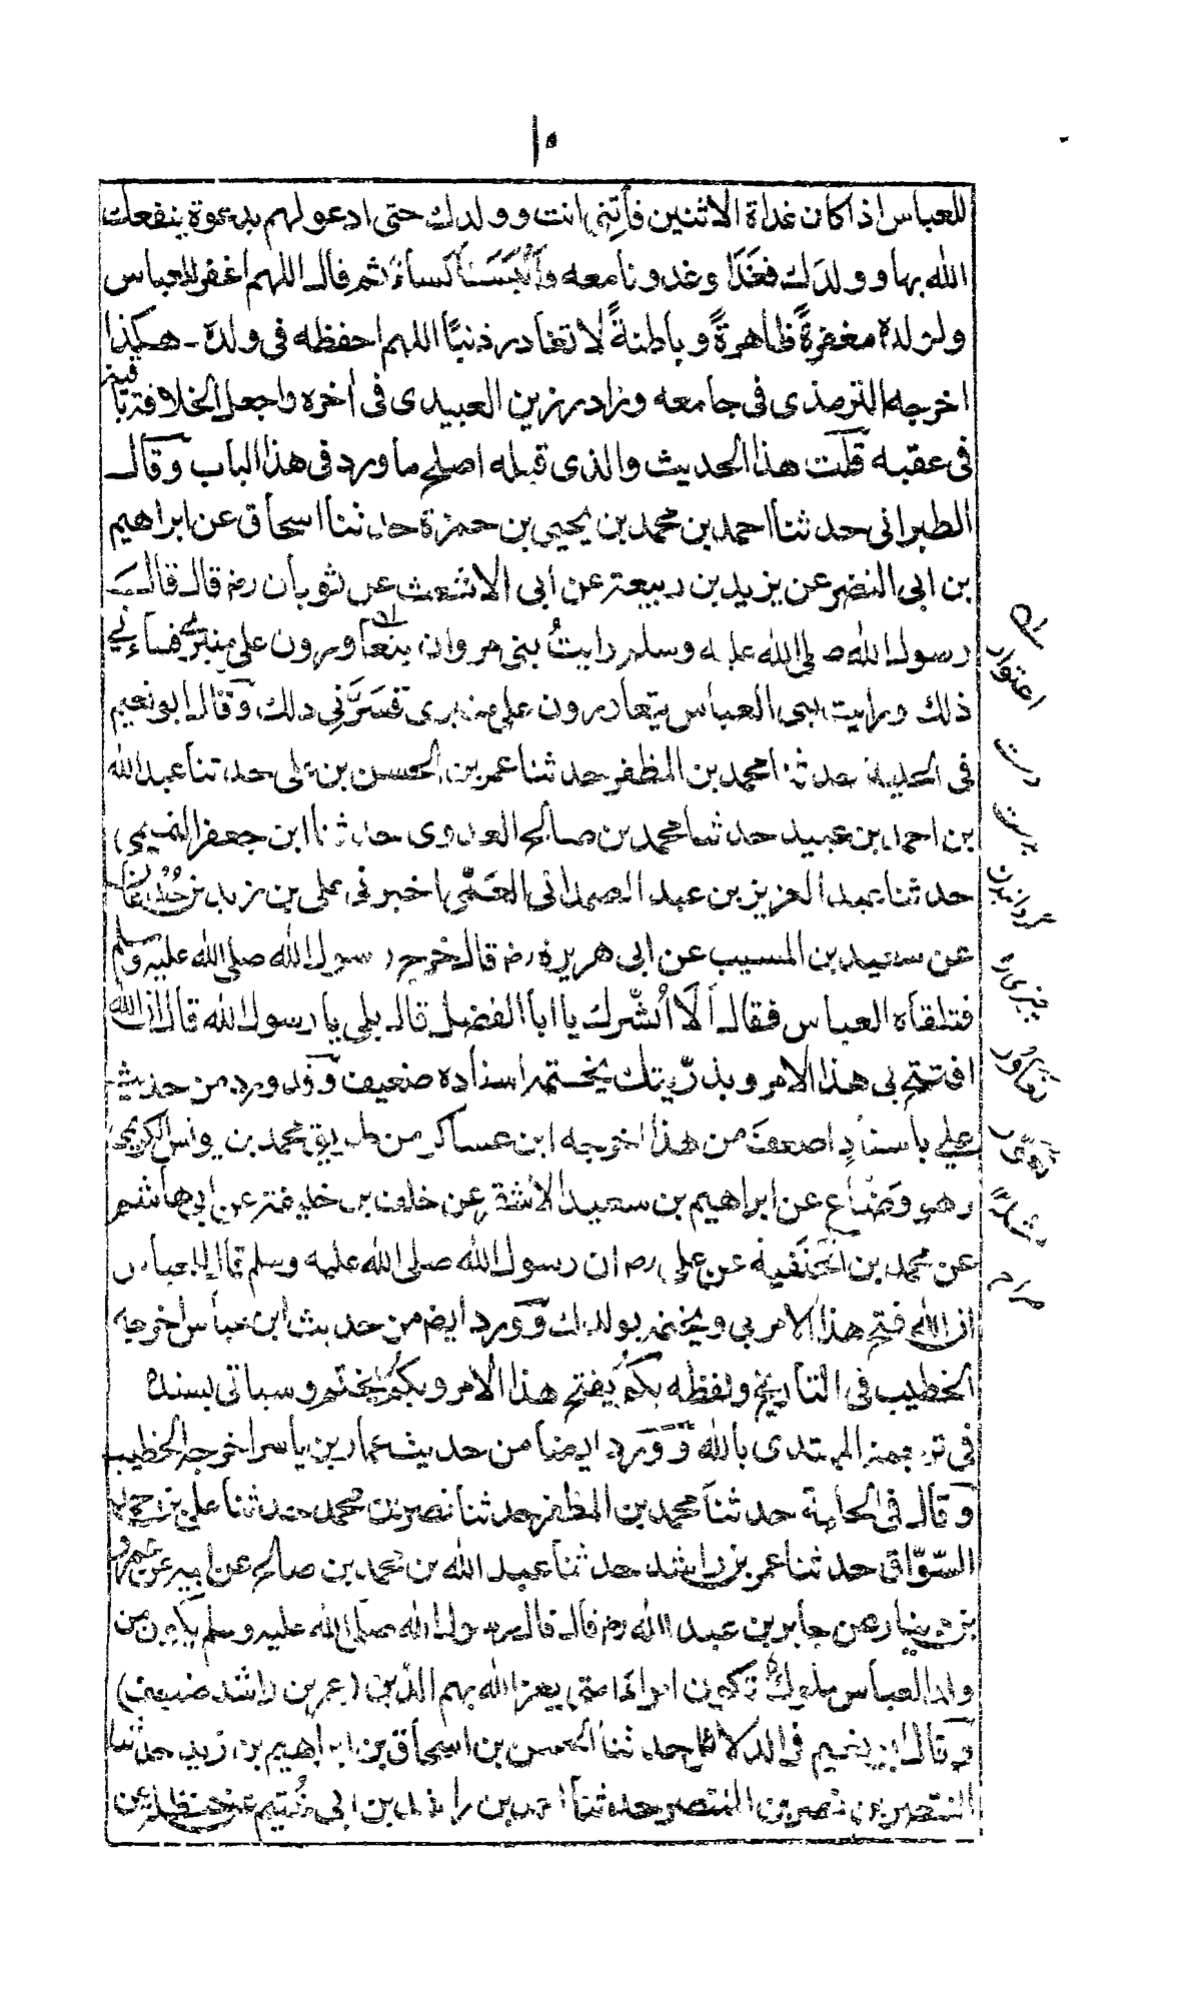 ١٠
للعباس اذا كان غداة الاثنين فأتنى انت وولدك حتى ادعو لهم بدعوة ينفعك
الله بها وولدك فغدا وغدونا معه وألبسنا كساءً ثم قال اللهم اغفر للعباس
ولولده مغفرةً ظاهرةً وباطنةً لا تغادر ذنبًا اللهم احفظه فى ولده ـ هكذا
اخرجه الترمذى فى جامعه وزاد رزين العبيدى فى أخره واجعل الخلافة باقية
فى عقبه قلت هذا الحديث والذى قبله اصلح ما ورد فى هذا الباب وقال
الطبرانى حدثنا احمد بن محمد بن يحيى بن حمزة حدثنا اسحاق عن ابراهيم
بن ابى النضر عن يزيد بن ربيعة عن ابى الاشعث عن ثوبان رض قال قال
رسول الله صلى الله عليه وسلم رايتُ بنى مروان يتعاورون على منبرى فساءنى
ذلك ورايت بنى العباس يتعاورون على منبرى فسرّنى ذلك وقال ابو نعيم
فى الحلية حدثنا محمد بن المظفر حدثنا عمر بن الحسن بن على حدثنا عبد الله
بن احمد بن عبيد حدثنا محمد بن صالح العدوى حدثنا ابن جعفر التميمى
حدثنا عبد العزيز بن عبد الصمد انى العمّى اخبرنى على بن زيد بن جدعان
عن سعيد بن المسيب عن ابى هريرة رض قال خرج رسول الله صلى الله عليه وسلم
فتلقاه العباس فقال ألا اُبشّرك يا ابا الفضل قال بلى يا رسول الله قال ان الله
افتتح بى هذا الامر وبذرّيتك يختمه اسناده ضعيف وقد ورد من حديث
على باسنادٍ اضعف من هذا اخرجه ابن عساكر من طريق محمد بن يونس الكريمى
وهو وضّاع عن ابراهيم بن سعيد الاشقر عن خلف بن خليفة عن ابى هاشم
عن محمد بن الحنفية عن على رض ان رسول الله صلى الله عليه وسلم قال للعباس
ان الله فتح هذا الامر بى ويختمه بولدك وورد ايضًا من حديث ابن عباس اخرجه
الخطيب فى التأريخ ولفظه بكم يُفتح هذا الامر وبكم يُختم وسياتى بسنده
فى ترجمة المهتدى بالله وورد ايضا من حديث عمار بن ياسر اخرجه الخطيب
وقال فى الحلية حدثنا محمد بن المظفر حدثنا نصر بن محمد حدثنا على بن احمد
السّوّاق حدثنا عمر بن راشد حدثنا عبد الله بن محمد بن صالح عن ابيه عن عمرو
بن دينار عن جابر بن عبد الله رض قال قال رسول الله صلى الله عليه وسلم يكون من
ولد العباس ملوكٌ تكون امراء امتى يعز الله بهم الدّين (عمر بن راشد ضعيف)
وقال ابو نعيم فى الدلائل حدثنا الحسن بن اسحاق بن ابراهيم بن زيد حدثنا
المنتصر بن نصر بن المنتصر حدثنا احمد بن راشد بن ابى خُثيم عن حنظلة عن
اعتوار
دست
بدست
گردانیدن
چیزی را
تعاور
تعوّر
مثله
صراح